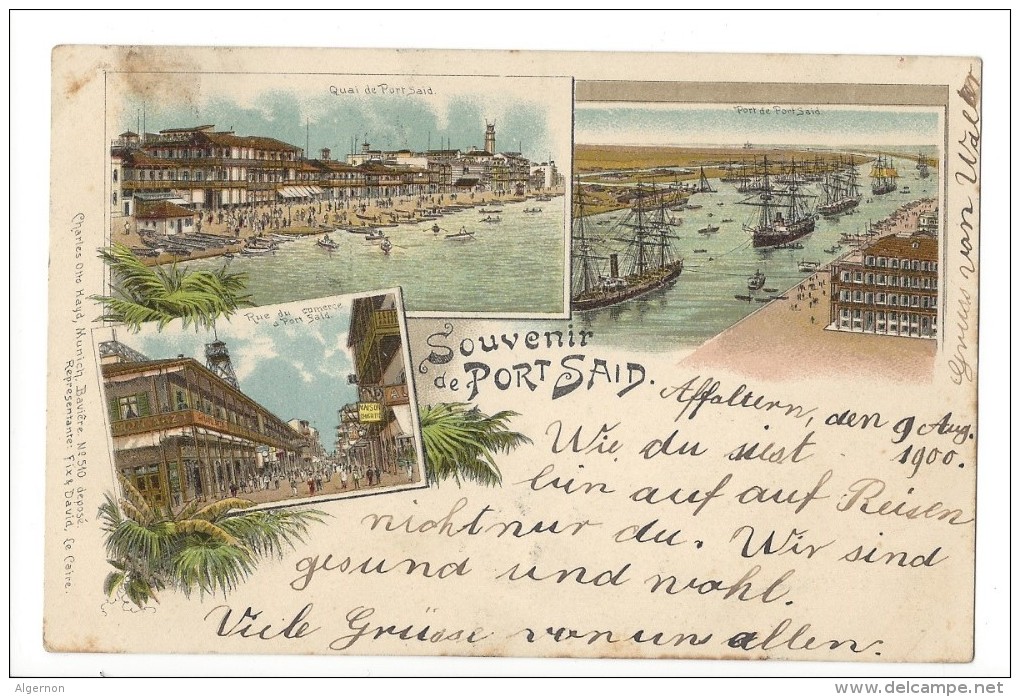 Quai de Port Said.
Port de Port Said.
Rue du comerce
a Port Said.
MAISON
Souvenir
de PORT SAID.
Affoltern, den 9 Aug.
1900.
Wie du siest
bin auch auf Reisen
nicht nur du. Wir sind
gesund und wohl.
Viele Grüsse von uns allen.
Gruss von Walter
Charles Otto Hayd, Munich, Bavière. No 510 deposé.
Representant: Fix & David, Le Caire.
Algernon
www.delcampe.net